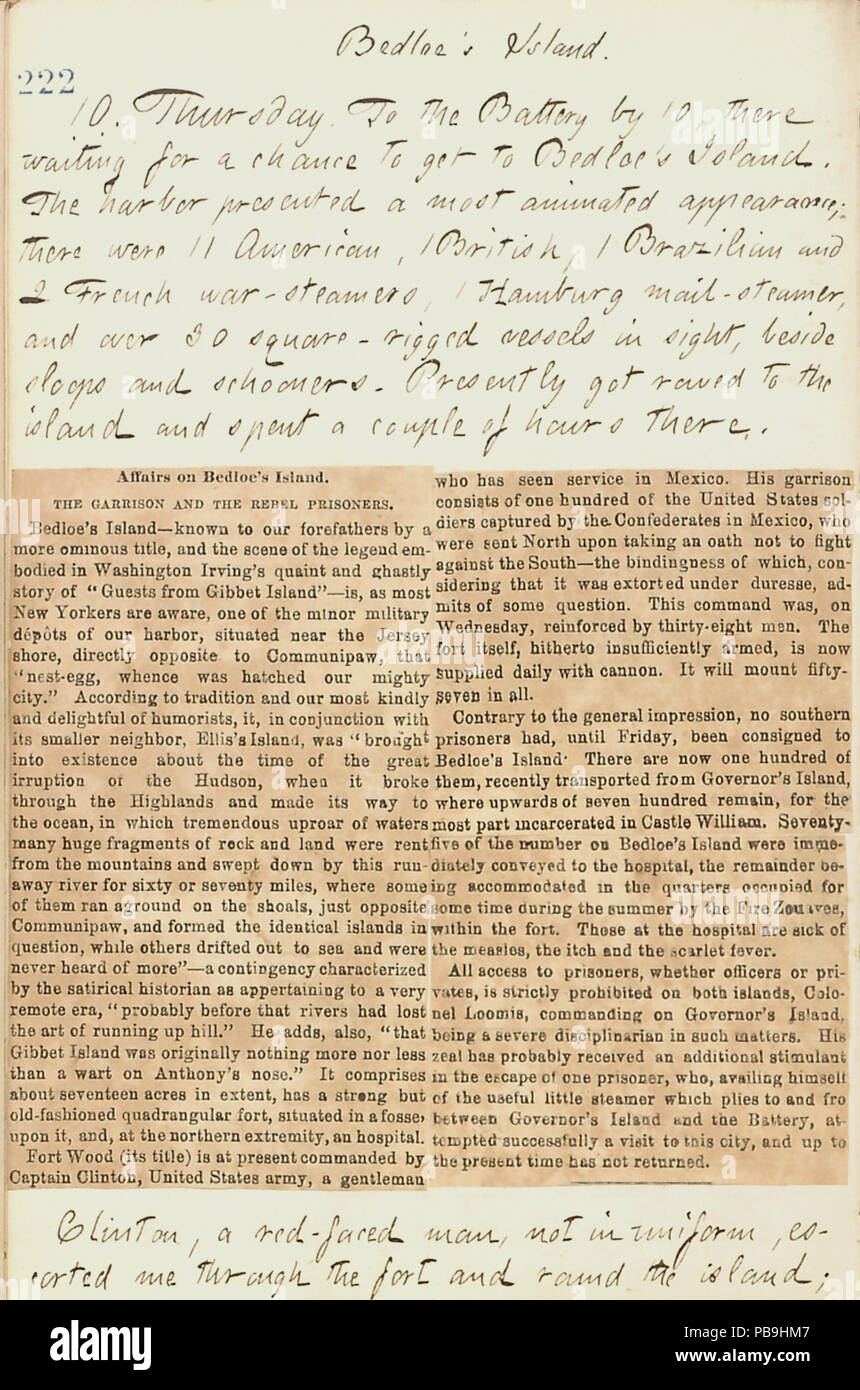 Bedloe's Island.
222
10. Thursday. To the Battery by 10, there
waiting for a chance to get to Bedloe's Island.
The harbor presented a most animated appearance;
there were 11 American, 1 British, 1 Brazilian and
2 French war-steamers, 1 Hamburg mail-steamer,
and over 30 square-rigged vessels in sight, beside
sloops and schooners. Presently got rowed to the
island and spent a couple of hours there.
Affairs on Bedloe's Island.
THE GARRISON AND THE REBEL PRISONERS.
Bedloe's Island—known to our forefathers by a
more ominous title, and the scene of the legend em-
bodied in Washington Irving's quaint and ghastly
story of "Guests from Gibbet Island"—is, as most
New Yorkers are aware, one of the minor military
dépôts of our harbor, situated near the Jersey
shore, directly opposite to Communipaw, that
"nest-egg, whence was hatched our mighty
city." According to tradition and our most kindly
and delightful of humorists, it, in conjunction with
its smaller neighbor, Ellis's Island, was "brought
into existence about the time of the great
irruption of the Hudson, when it broke
through the Highlands and made its way to
the ocean, in which tremendous uproar of waters
many huge fragments of rock and land were rent
from the mountains and swept down by this run-
away river for sixty or seventy miles, where some
of them ran aground on the shoals, just opposite
Communipaw, and formed the identical islands in
question, while others drifted out to sea and were
never heard of more"—a contingency characterized
by the satirical historian as appertaining to a very
remote era, "probably before that rivers had lost
the art of running up hill." He adds, also, "that
Gibbet Island was originally nothing more nor less
than a wart on Anthony's nose." It comprises
about seventeen acres in extent, has a strong but
old-fashioned quadrangular fort, situated in a fosse,
upon it, and, at the northern extremity, an hospital.
Fort Wood (its title) is at present commanded by
Captain Clinton, United States army, a gentleman
who has seen service in Mexico. His garrison
consists of one hundred of the United States sol-
diers captured by the Confederates in Mexico, who
were sent North upon taking an oath not to fight
against the South—the bindingness of which, con-
sidering that it was extorted under duresse, ad-
mits of some question. This command was, on
Wednesday, reinforced by thirty-eight men. The
fort itself, hitherto insufficiently armed, is now
supplied daily with cannon. It will mount fifty-
seven in all.
Contrary to the general impression, no southern
prisoners had, until Friday, been consigned to
Bedloe's Island. There are now one hundred of
them, recently transported from Governor's Island,
where upwards of seven hundred remain, for the
most part incarcerated in Castle William. Seventy-
five of the number on Bedloe's Island were imme-
diately conveyed to the hospital, the remainder be-
ing accommodated in the quarters occupied for
some time during the summer by the Fire Zouaves,
within the fort. Those at the hospital are sick of
the measles, the itch and the scarlet fever.
All access to prisoners, whether officers or pri-
vates, is strictly prohibited on both islands, Colo-
nel Loomis, commanding on Governor's Island,
being a severe disciplinarian in such matters. His
zeal has probably received an additional stimulant
in the escape of one prisoner, who, availing himself
of the useful little steamer which plies to and fro
between Governor's Island and the Battery, at-
tempted successfully a visit to this city, and up to
the present time has not returned.
Clinton, a red-faced man, not in uniform, es-
corted me through the fort and round the island;
alamy
Image ID: PB9HM7
www.alamy.com